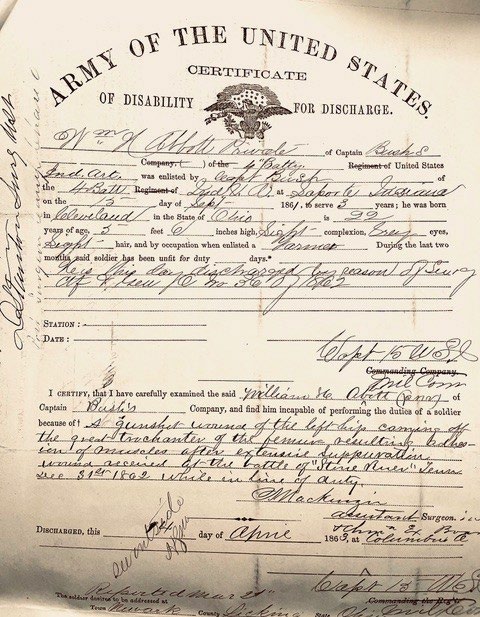 ARMY OF THE UNITED STATES.
CERTIFICATE
OF DISABILITY FOR DISCHARGE.
Wm H Abbott Private of Captain Bush's
Company, ( ) of the 4" Batty Regiment of United States
Ind Art. was enlisted by Capt Bush of
the 4 Batt Regiment of at Laporte Indiana
on the 15 day of Sept 1861, to serve 3 years; he was born
in Cleveland in the State of Ohio is 22
years of age, 5 feet 6 inches high, Light complexion, Grey eyes,
Light hair, and by occupation when enlisted a Farmer During the last two
months said soldier has been unfit for duty days.*
He is this day discharged by reason of Surg
1862
STATION:
DATE:
Capt 15 U S I
Commanding Company.
Mil Com
I CERTIFY, that I have carefully examined the said William H Abott of
Captain Bush's Company, and find him incapable of performing the duties of a soldier
because of A gunshot wound of the left hip carrying off
the great trochanter of the femur resulting adhes-
ion of muscles after extensive suppuration
wound received at the battle of "Stone River" Tenn
Dec 31st 1862 while in line of duty.
assistant Surgeon
DISCHARGED, this day of April 1863, at Columbus O
see outside
Capt 15 U S I
Commanding the Reg't
The soldier desires to be addressed at
Town Newark County Licking State O Mil Com